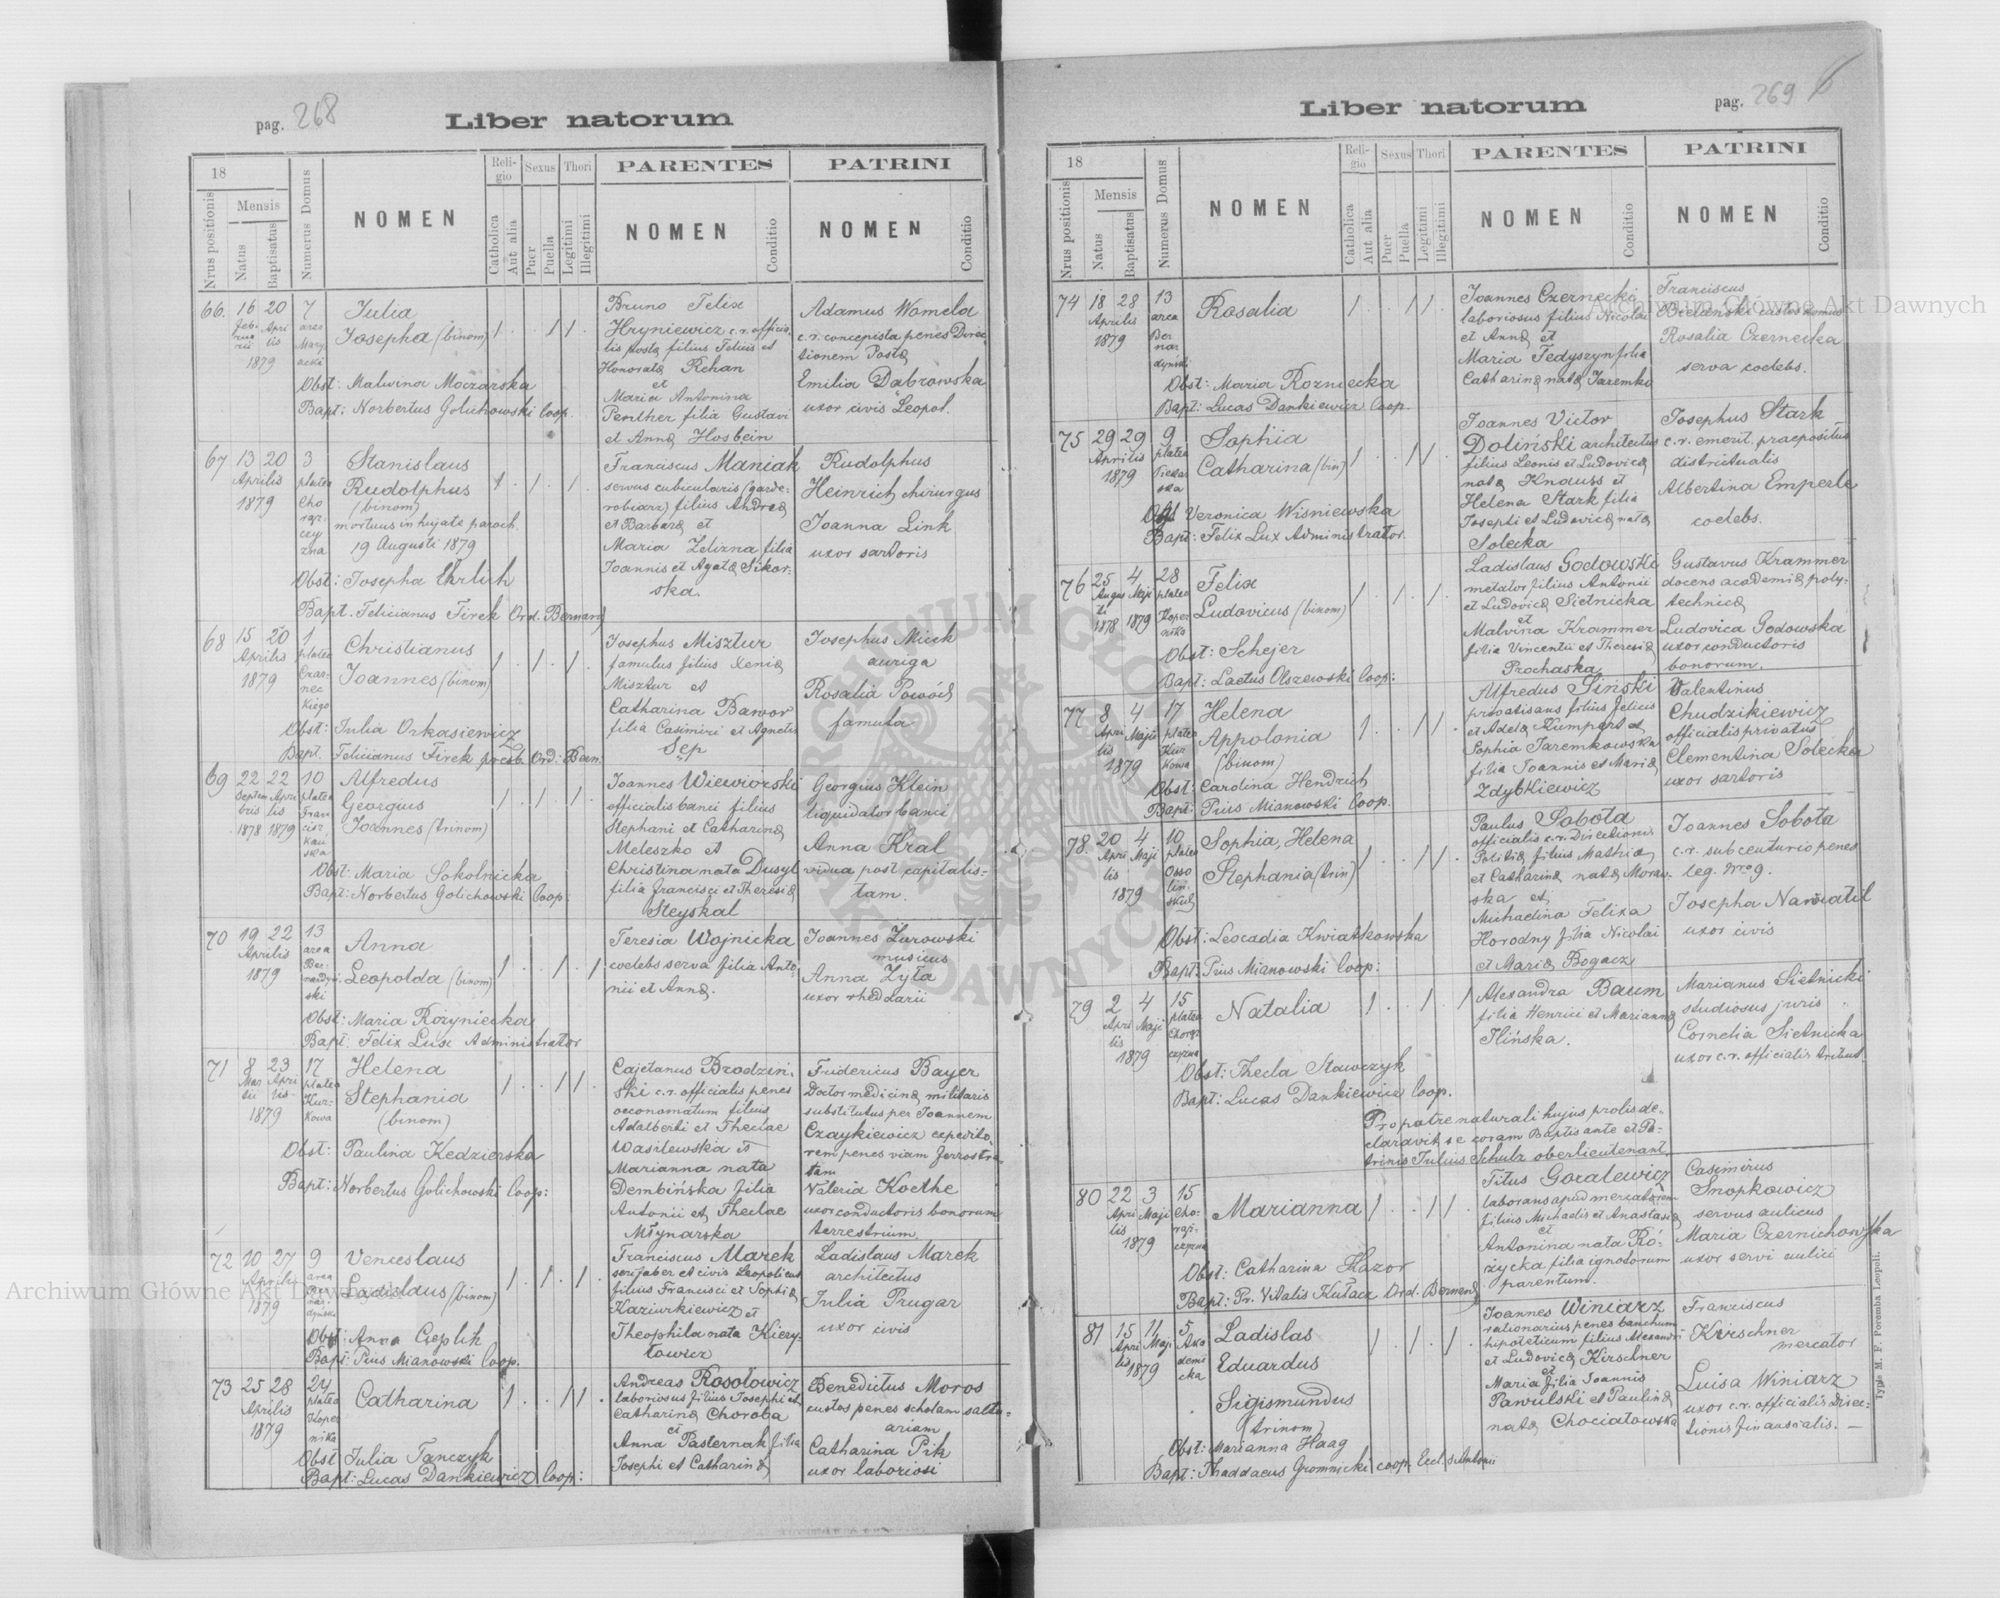 pag. 268
Liber natorum
18
Nrus positionis
Mensis
Natus
Baptisatus
Numerus Domus
NOMEN
Religio
Catholica
Aut alia
Sexus
Puer
Puella
Thori
Legitimi
Illegitimi
PARENTES
NOMEN
Conditio
PATRINI
NOMEN
Conditio
66. 16 Februarii 20 Aprilis 1879
7 area Maryacki
Julia
Josepha (binom)
Obst: Malwina Moczarska
Bapt: Norbertus Golichowski Coop.
Bruno Felix
Hryniewicz c.r. officialis postæ filius Felicis et
Honoratæ Rehan
et
Maria Antonina
Penther filia Gustavi
et Annæ Hosbein
Adamus Womela
c.r. concepista penes Directionem Postæ
Emilia Dąbrowska
uxor civis Leopol.
67 13 20 Aprilis 1879
3 platea Chorąszczyzna
Stanislaus
Rudolphus
(binom)
mortuus in hujate paroch.
19 Augusti 1879
Obst: Josepha Ehrlich
Bapt. Felicianus Firek Ord. Bernard
Franciscus Maniak
servus cubicularis (garderobiarz) filius Andreæ
et Barbaræ et
Maria Zelizna filia
Joannis et Agatæ Sikorska.
Rudolphus
Heinrich chirurgus
Joanna Link
uxor sartoris
68 15 20 Aprilis 1879
1 platea Czarneckiego
Christianus
Joannes (binom)
Obst: Julia Orkasiewicz
Bapt. Felicianus Firek presb. Ord. Bern.
Josephus Misztur
famulus filius Xeniæ
Misztur et
Catharina Bawor
filia Casimiri et Agnetis
Sęp
Josephus Mick
auriga
Rosalia Powóz
famula
69 22 Septembris 1878 22 Aprilis 1879
10 platea Franciszkańska
Alfredus
Georgius
Joannes (trinom)
Obst: Maria Sokolnicka
Bapt: Norbertus Golichowski Coop:
Joannes Wiewiórski
officialis banci filius
Stephani et Catharinæ
Meleszko et
Christina nata Dusyl
filia Francisci et Theresiæ
Steyskal
Georgius Klein
liquidator banci
Anna Kral
vidua post capitalistam.
70 19 22 Aprilis 1879
13 area Bernardyński
Anna
Leopolda (binom)
Obst: Maria Rożyniecka
Bapt: Felix Lux Administrator
Teresia Wojnicka
coelebs serva filia Antonii et Annæ.
Joannes Zurowski
musicus
Anna Zyła
uxor rhedarii
71 8 Martii 23 Aprilis 1879
17 platea Kurkowa
Helena
Stephania
(binom)
Obst: Paulina Kedzierska
Bapt: Norbertus Golichowski Coop:
Cajetanus Brodziński c.r. officialis penes
oeconomatum filius
Adalberti et Theclae
Wasilewska et
Marianna nata
Dembińska filia
Antonii et Theclae
Młynarska
Fridericus Bayer
Doctor medicinæ militaris
substitutus per Joannem
Czaykiewicz expeditorem penes viam ferrostratam
Valeria Koethe
uxor conductoris bonorum
terrestrium
72 10 27 Aprilis 1879
9 area Bernardyński
Venceslaus
Ladislaus (binom)
Obst: Anna Cieplik
Bapt: Pius Mianowski Coop.
Franciscus Marek
serifaber et civis Leopoliens
filius Francisci et Sophiæ
Kaziurkiewicz et
Theophila nata Kierylowicz
Ladislaus Marek
architectus
Julia Prugar
uxor civis
73 25 28 Aprilis 1879
24 platea Kopernika
Catharina
Obst Julia Tanczyk
Bapt: Lucas Dankiewicz Coop:
Andreas Rosołowicz
laboriosus filius Josephi et
Catharinæ Choroba
et
Anna Pasternak filia
Josephi et Catharinæ
Benedictus Moros
custos penes scholam saltuariam
Catharina Pik
uxor laboriosi
pag. 269 6
Liber natorum
18
Nrus positionis
Mensis
Natus
Baptisatus
Numerus Domus
NOMEN
Religio
Catholica
Aut alia
Sexus
Puer
Puella
Thori
Legitimi
Illegitimi
PARENTES
NOMEN
Conditio
PATRINI
NOMEN
Conditio
74 18 28 Aprilis 1879
13 area Bernardyński
Rosalia
Obst: Maria Rozniecka
Bapt: Lucas Dankiewicz Coop.
Joannes Czernecki
laboriosus filius Nicolai
et Annæ et
Maria Fedyszyn filia
Catharinæ natæ Jaremko
Franciscus
Bielanski custos domus
Rosalia Czernecka
serva coelebs.
75 29 29 Aprilis 1879
9 platea Piekarska
Sophia
Catharina (bin)
Obst Veronica Wisniewska
Bapt: Felix Lux Administrator.
Joannes Victor
Doliński architectus
filius Leonis et Ludovicæ
natæ Knauss et
Helena Stark filia
Josephi et Ludovicæ natæ
Solecka
Josephus Stark
c.r. emerit. praepositus
districtualis
Albertina Emperle
coelebs.
76 25 Augusti 1878 4 Maji 1879
28 platea Kopernika
Felix
Ludovicus (binom)
Obst: Schejer
Bapt: Laetus Olszewski Coop:
Ladislaus Godowski
metator filius Antonii
et Ludovicæ Sietnicka
et
Malvina Krammer
filia Vincentii et Theresiæ
Prochaska
Gustavus Krammer
docens academiæ polytechnicæ
Ludovica Godowska
uxor conductoris
bonorum.
77 8 Aprilis 4 Maji 1879
17 platea Kurkowa
Helena
Appolonia
(binom)
Obst: Carolina Hendrich
Bapt: Pius Mianowski Coop.
Alfredus Siński
privatisans filius Felicis
et Adelæ Kumpert et
Sophia Jaremkowska
filia Joannis et Mariæ
Zdybkiewicz
Valentinus
Chudzikiewicz
officialis privatus
Clementina Solecka
uxor sartoris
78. 20 Aprilis 4 Maji 1879
10 platea Ossolińskich
Sophia, Helena
Stephania (trin)
Obst: Leocadia Kwiatkowska
Bapt: Pius Mianowski Coop:
Paulus Sobota
officialis c.r. Directionis
Politiæ filius Mathiæ
et Catharinæ natæ Morawska et
Michaelina Felixa
Horodny filia Nicolai
et Mariæ Bogacz
Joannes Sobota
c.r. subcenturio penes
leg. nro 9.
Josepha Nawratil
uxor civis
79 2 Aprilis 4 Maji 1879
15 platea Chorążczyzna
Natalia
Obst: Thecla Stawczyk
Bapt: Lucas Dankiewicz Coop.
Alexandra Baum
filia Henrici et Mariannæ
Ilińska.
Marianus Sietnicki
studiosus juris
Cornelia Sietnicka
uxor c.r. officialis tribut.
Pro patre naturali hujus prolis declaravit se coram Baptisante et Patrinis Julius Schulz oberlieutenant
80 22 Aprilis 3 Maji 1879
15 Chorążczyzna
Marianna
Obst: Catharina Kazor
Bapt: Pr. Vitalis Kułacz Ord. Bernard
Titus Goralewicz
laborans apud mercatorem
filius Michaelis et Anastasiæ
et
Antonina nata Różycka filia ignotorum
parentum.
Casimirus
Snopkowicz
servus aulicus
Maria Czernichowska
uxor servi aulici
81 15 Aprilis 11 Maji 1879
5 Akademicka
Ladislas
Eduardus
Sigismundus
(trinom)
Obst: Marianna Haag
Bapt: Thaddaeus Gromnicki coop. Eccl. S. Antonii
Joannes Winiarz
rationarius penes bancum
hipoteticum filius Alexandri
et Ludovicæ Kirschner
et
Maria filia Joannis
Pawulski et Paulinæ
natæ Chociatowska
Franciscus
Kirschner
mercator
Luisa Winiarz
uxor c.r. officialis Directionis financialis. —
Typis M. F. Poremba Leopoli.
Archiwum Główne Akt Dawnych
Archiwum Główne Akt Dawnych
ARCHIWUM GŁÓWNE AKT DAWNYCH